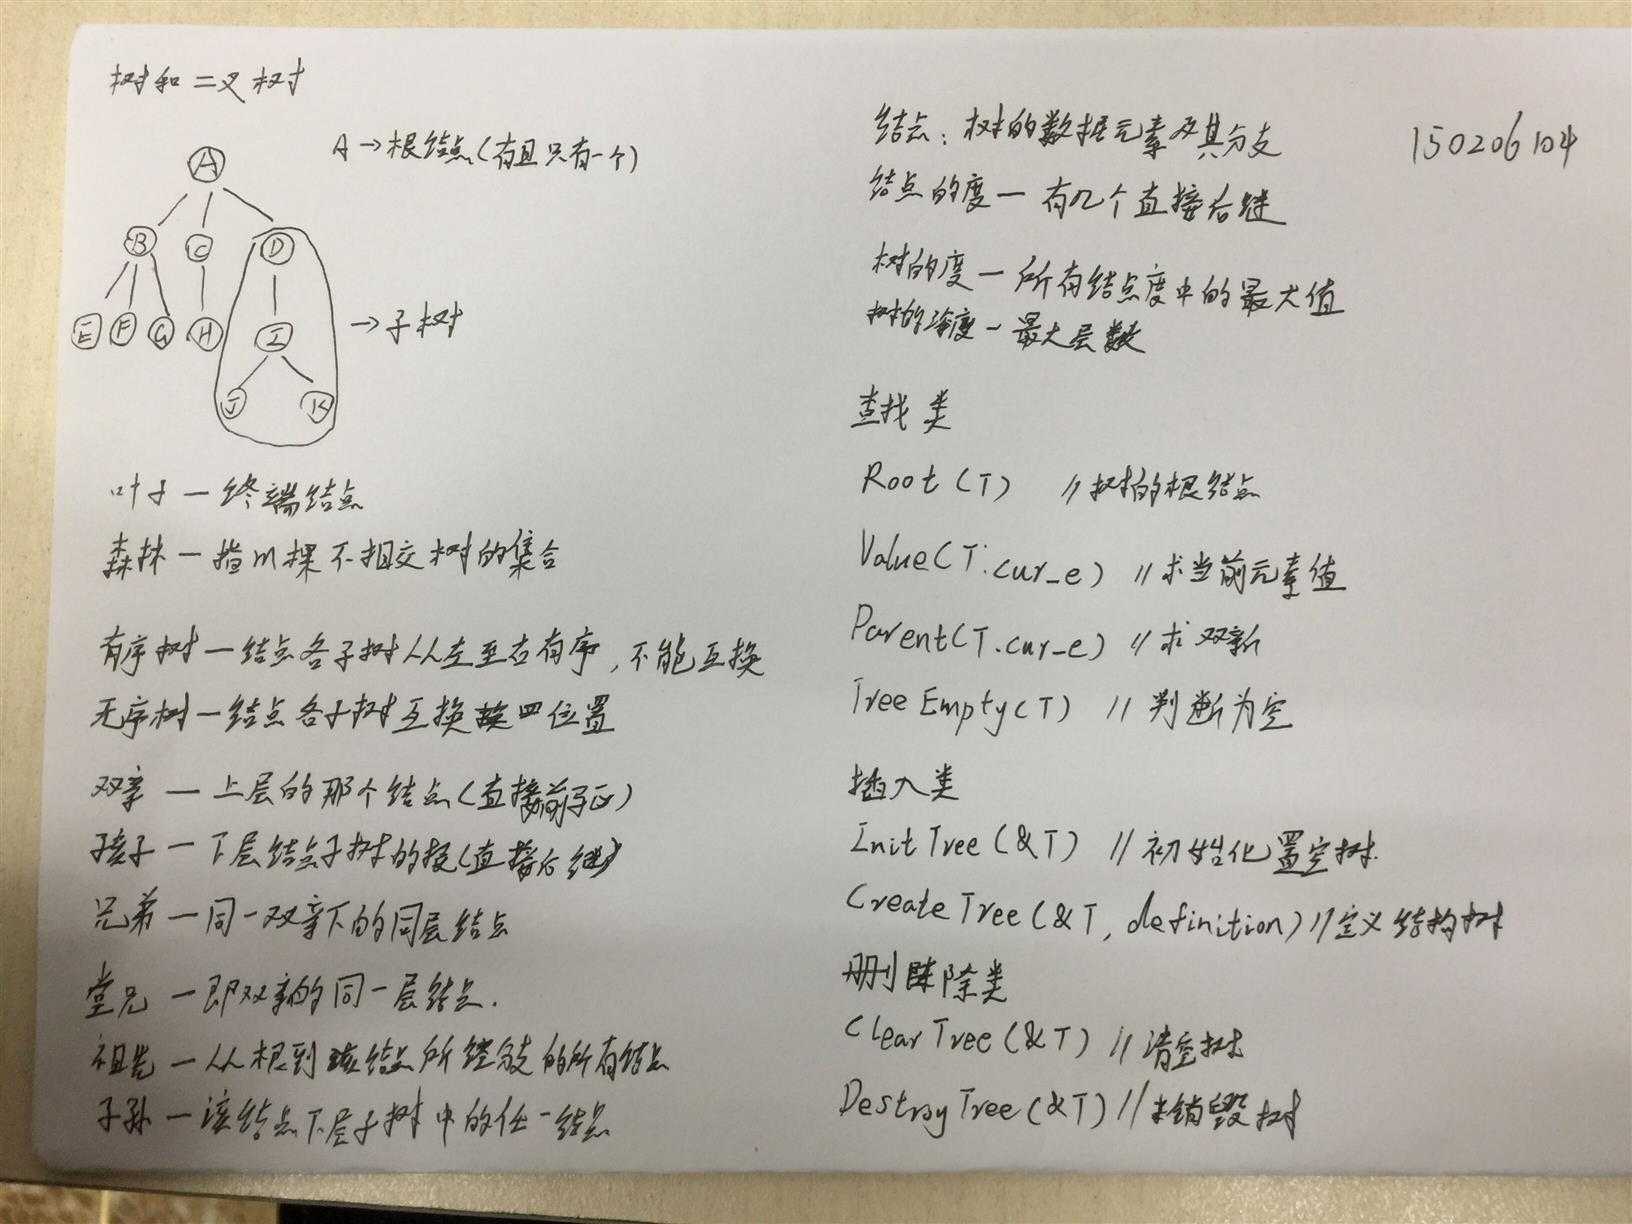 树和二叉树
A→根结点(有且只有一个)
A
B C D
E F G H I
→子树
J K
叶子—终端结点
森林—指m棵不相交树的集合
有序树—结点各子树从左至右有序,不能互换
无序树—结点各子树互换 位置
双亲—上层的那个结点(直接前驱)
孩子—下层结点子树的根(直接后继)
兄弟—同一双亲下的同层结点
堂兄—即双亲的同一层结点.
祖先—从根到该结点所经分支的所有结点
子孙—该结点下层子树中的任一结点
150206104
结点:树的数据元素及其分支
结点的度—有几个直接后继
树的度—所有结点度中的最大值
树的深度—最大层数
查找类
Root(T) //树的根结点
Value(T.cur_e) //求当前元素值
Parent(T.cur_e) //求双亲
TreeEmpty(T) //判断为空
插入类
InitTree(&T) //初始化置空树.
CreateTree(&T,definition)//定义结构树
删除类
ClearTree(&T) //清空树
DestroyTree(&T)//销毁树